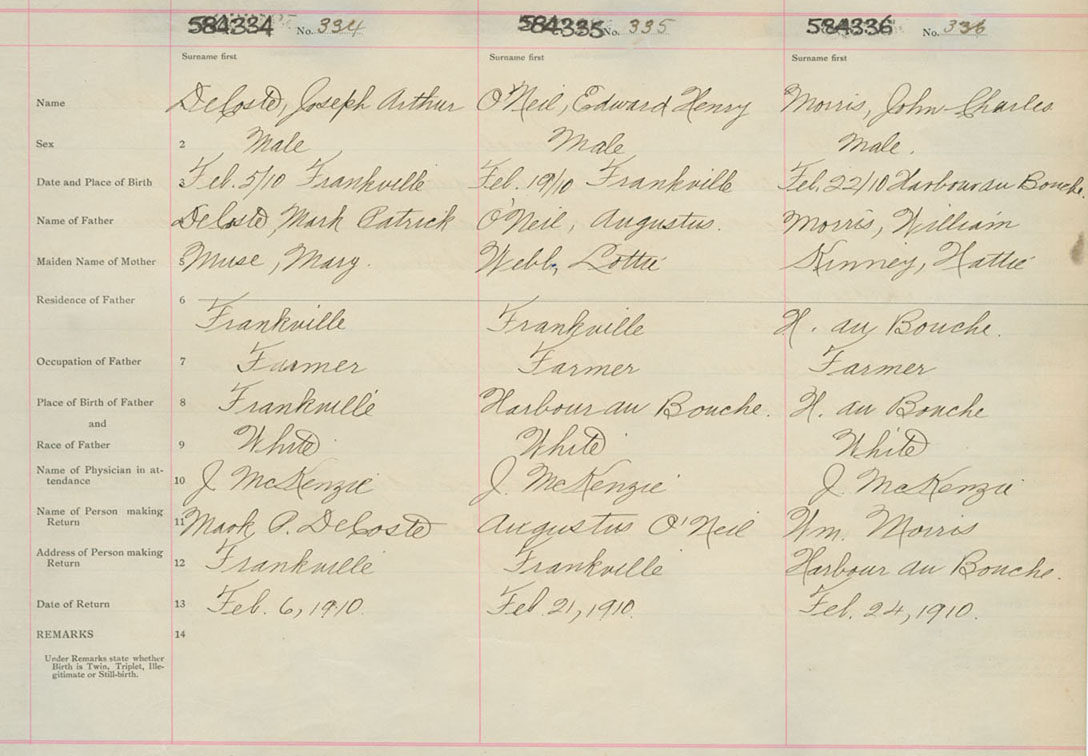 584334 No. 334 584335 No. 335 584336 No. 336
Surname first Surname first Surname first
Name DeCoste, Joseph Arthur O'Neil, Edward Henry Morris, John Charles
Sex 2 Male Male Male.
Date and Place of Birth 3 Feb. 5/10 Frankville Feb. 19/10 Frankville Feb. 22/10 Harbour au Bouche.
Name of Father 4 DeCoste, Mark Patrick O'Neil, Augustus. Morris, William
Maiden Name of Mother 5 Muse, Mary. Webb, Lottie Kinney, Hattie
Residence of Father 6
Frankville Frankville H. au Bouche.
Occupation of Father 7 Farmer Farmer Farmer
Place of Birth of Father 8 Frankville Harbour au Bouche. H. au Bouche
and
Race of Father 9 White White White
Name of Physician in at-
tendance 10 J. McKenzie J. McKenzie J. McKenzie
Name of Person making
Return 11 Mark P. DeCoste Augustus O'Neil Wm. Morris
Address of Person making
Return 12 Frankville Frankville Harbour au Bouche.
Date of Return 13 Feb. 6, 1910. Feb. 21, 1910. Feb. 24, 1910.
REMARKS 14
Under Remarks state whether
Birth is Twin, Triplet, Ille-
gitimate or Still-birth.